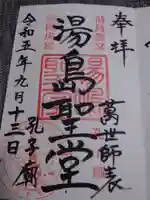 奉拝
萬世師表
湯島聖堂
孔子廟
令和五年九月十三日